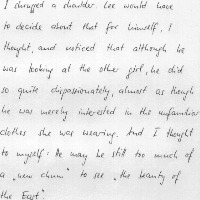 I shrugged a shoulder. Lee would have
to decide about that for himself, I
thought, and noticed that although he
was looking at the other girl, he did
so quite dispassionately, almost as though
he was merely interested in the unfamiliar
clothes she was wearing. And I thought
to myself: He may be still too much of
a "new chum" to see "the beauty of
the East".